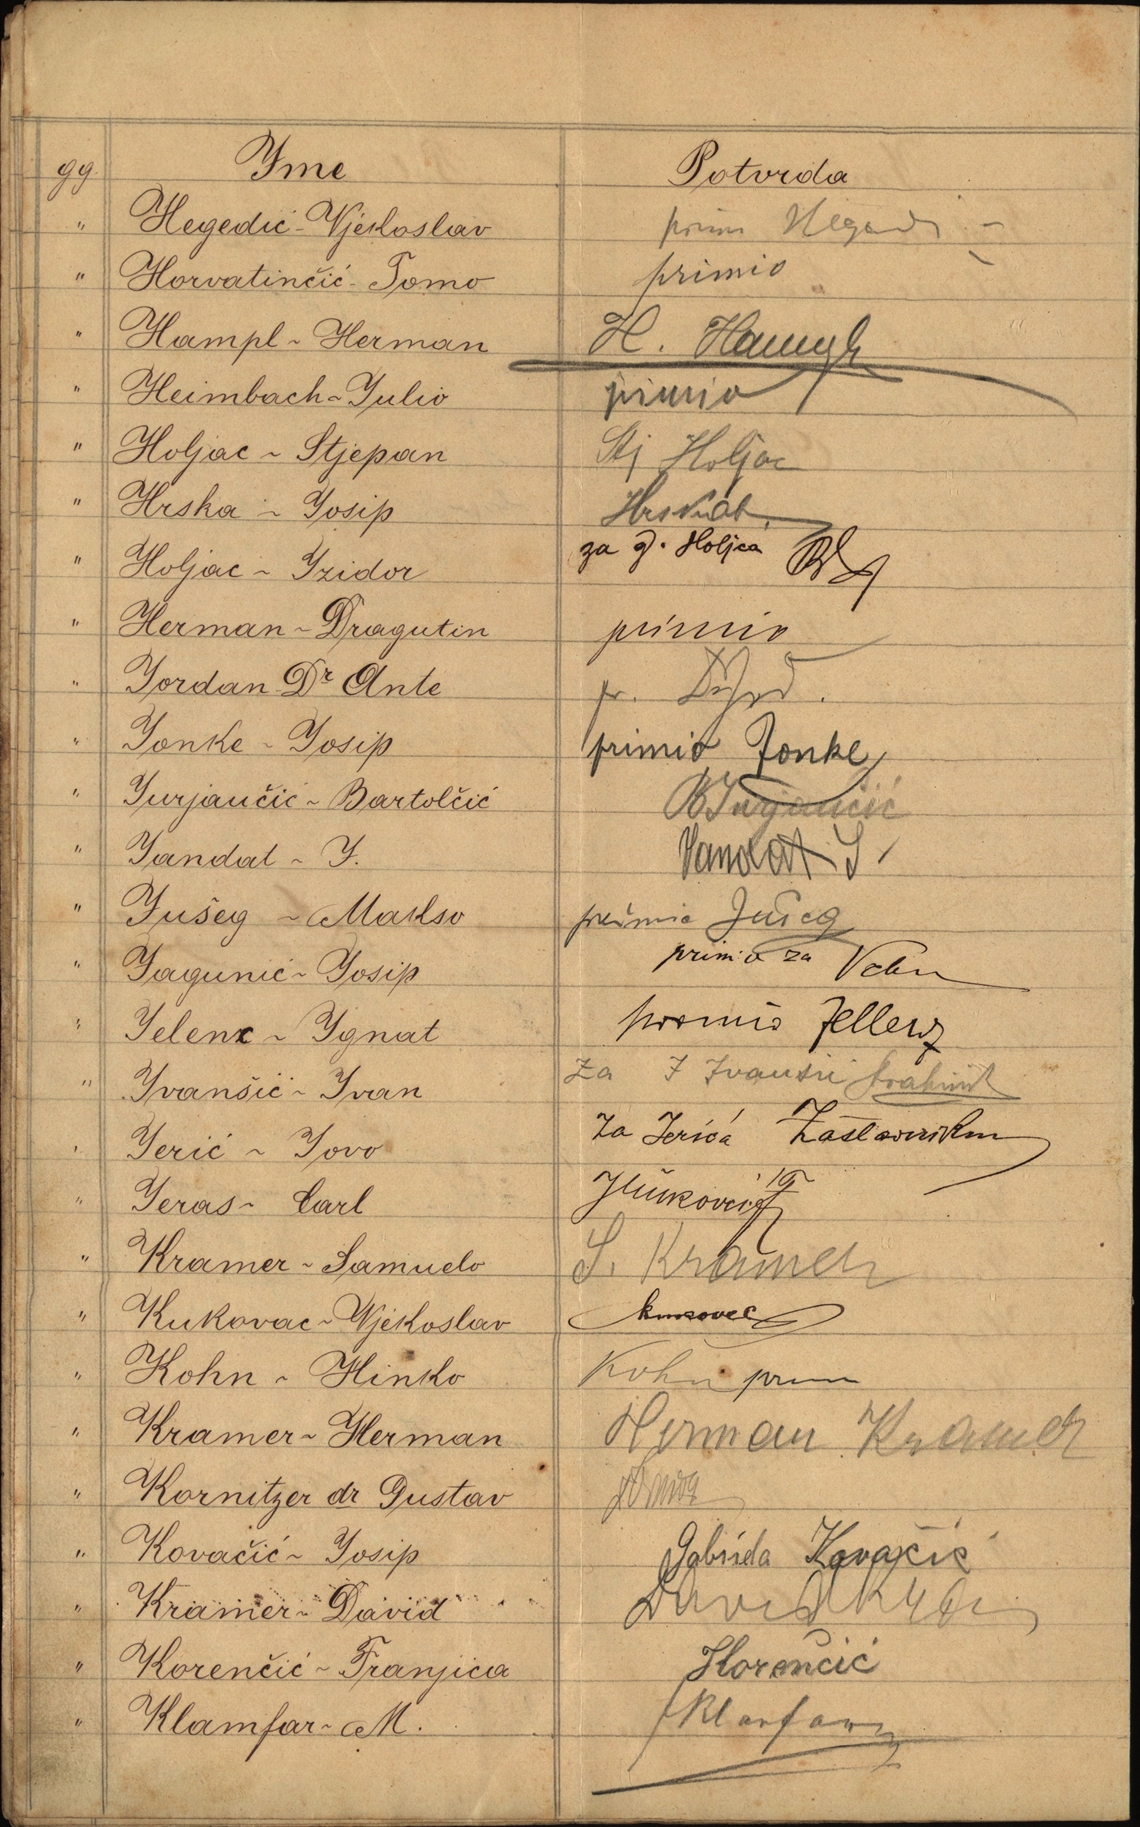 gg. Yme Potvrda
" Hegedić - Vjekoslav
" Horvatinčić - Tomo primio
" Hampl - Herman H. Hampl
" Heimbach - Julio primio
" Holjac - Stjepan Stj Holjac
" Hrska - Josip
" Holjac - Izidor za g. Holjca
" Herman - Dragutin primio
" Jordan Dr Ante pr.
" Jonke - Josip primio Jonke
" Jurjaučić - Bartolčić B Jurjaučić
" Jandat - J. Vandat J.
" Jušeg - Makso primio Jušeg
" Jagunić - Josip primio za
" Jelenc - Ignat primio
" Ivanšić - Ivan Za I Ivanšić
" Jerić - Jovo Za Jerića
" Jeras - Carl
" Kramer - Samuelo S. Kramer
" Kukovac - Vjekoslav
" Kohn - Hinko Kohn
" Kramer - Herman Herman Kramer
" Kornitzer dr Gustav
" Kovačić - Josip Kovačić
" Kramer - David David
" Korenčić - Franjica Korenčić
" Klamfar - M.